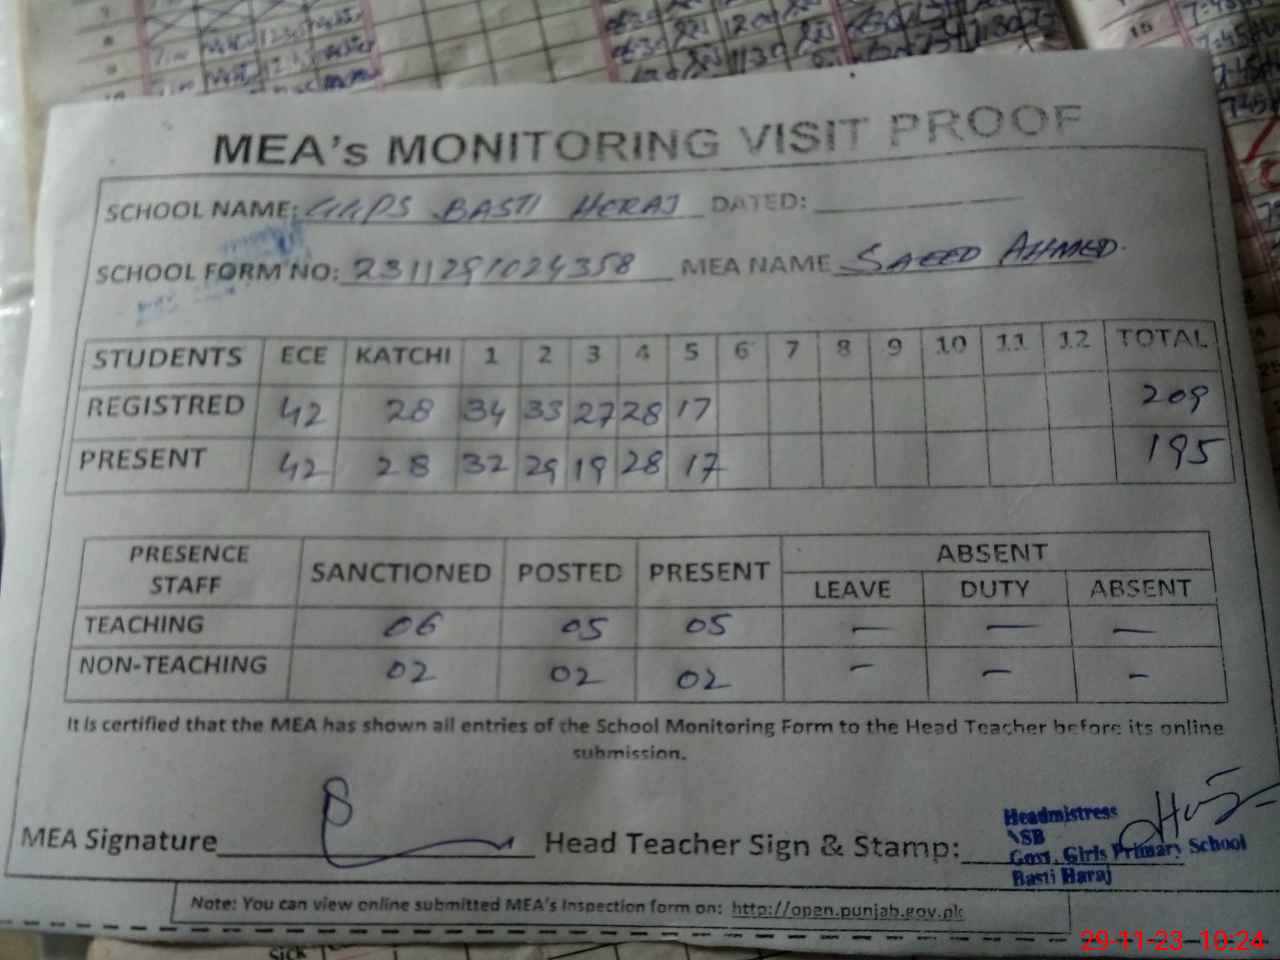 MEA's MONITORING VISIT PROOF
SCHOOL NAME: GGPS BASTI HERAJ DATED:
SCHOOL FORM NO: 2311291024358 MEA NAME SAEED AHMED.
STUDENTS ECE KATCHI 1 2 3 4 5 6 7 8 9 10 11 12 TOTAL
REGISTRED 42 28 34 33 27 28 17 209
PRESENT 42 28 32 29 19 28 17 195
PRESENCE STAFF SANCTIONED POSTED PRESENT ABSENT
LEAVE DUTY ABSENT
TEACHING 06 05 05 — — —
NON-TEACHING 02 02 02 — — —
It is certified that the MEA has shown all entries of the School Monitoring Form to the Head Teacher before its online
submission.
MEA Signature Head Teacher Sign & Stamp:
Headmistress
Govt. Girls Primary School
Basti Haraj
Note: You can view online submitted MEA's Inspection form on: http://open.punjab.gov.pk
29-11-23 10:24